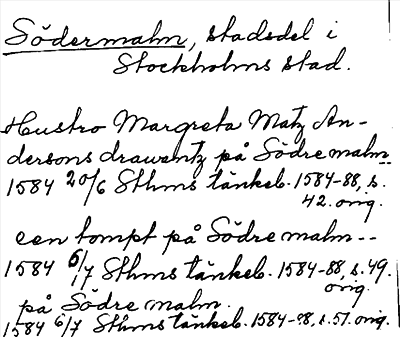 Södermalm, stadsdel i
Stockholms stad.
Hustro Margreta Matz An-
dersons drawantz på Södre malm--
1584 20/6 Sthms tänkeb. 1584-88, s.
42. orig.
een tompt på Södre malm--
1584 5/7 Sthms tänkeb. 1584-88, s. 49.
orig.
på Södre malm.
1584 6/7 Sthms tänkeb. 1584-88, s. 51. orig.